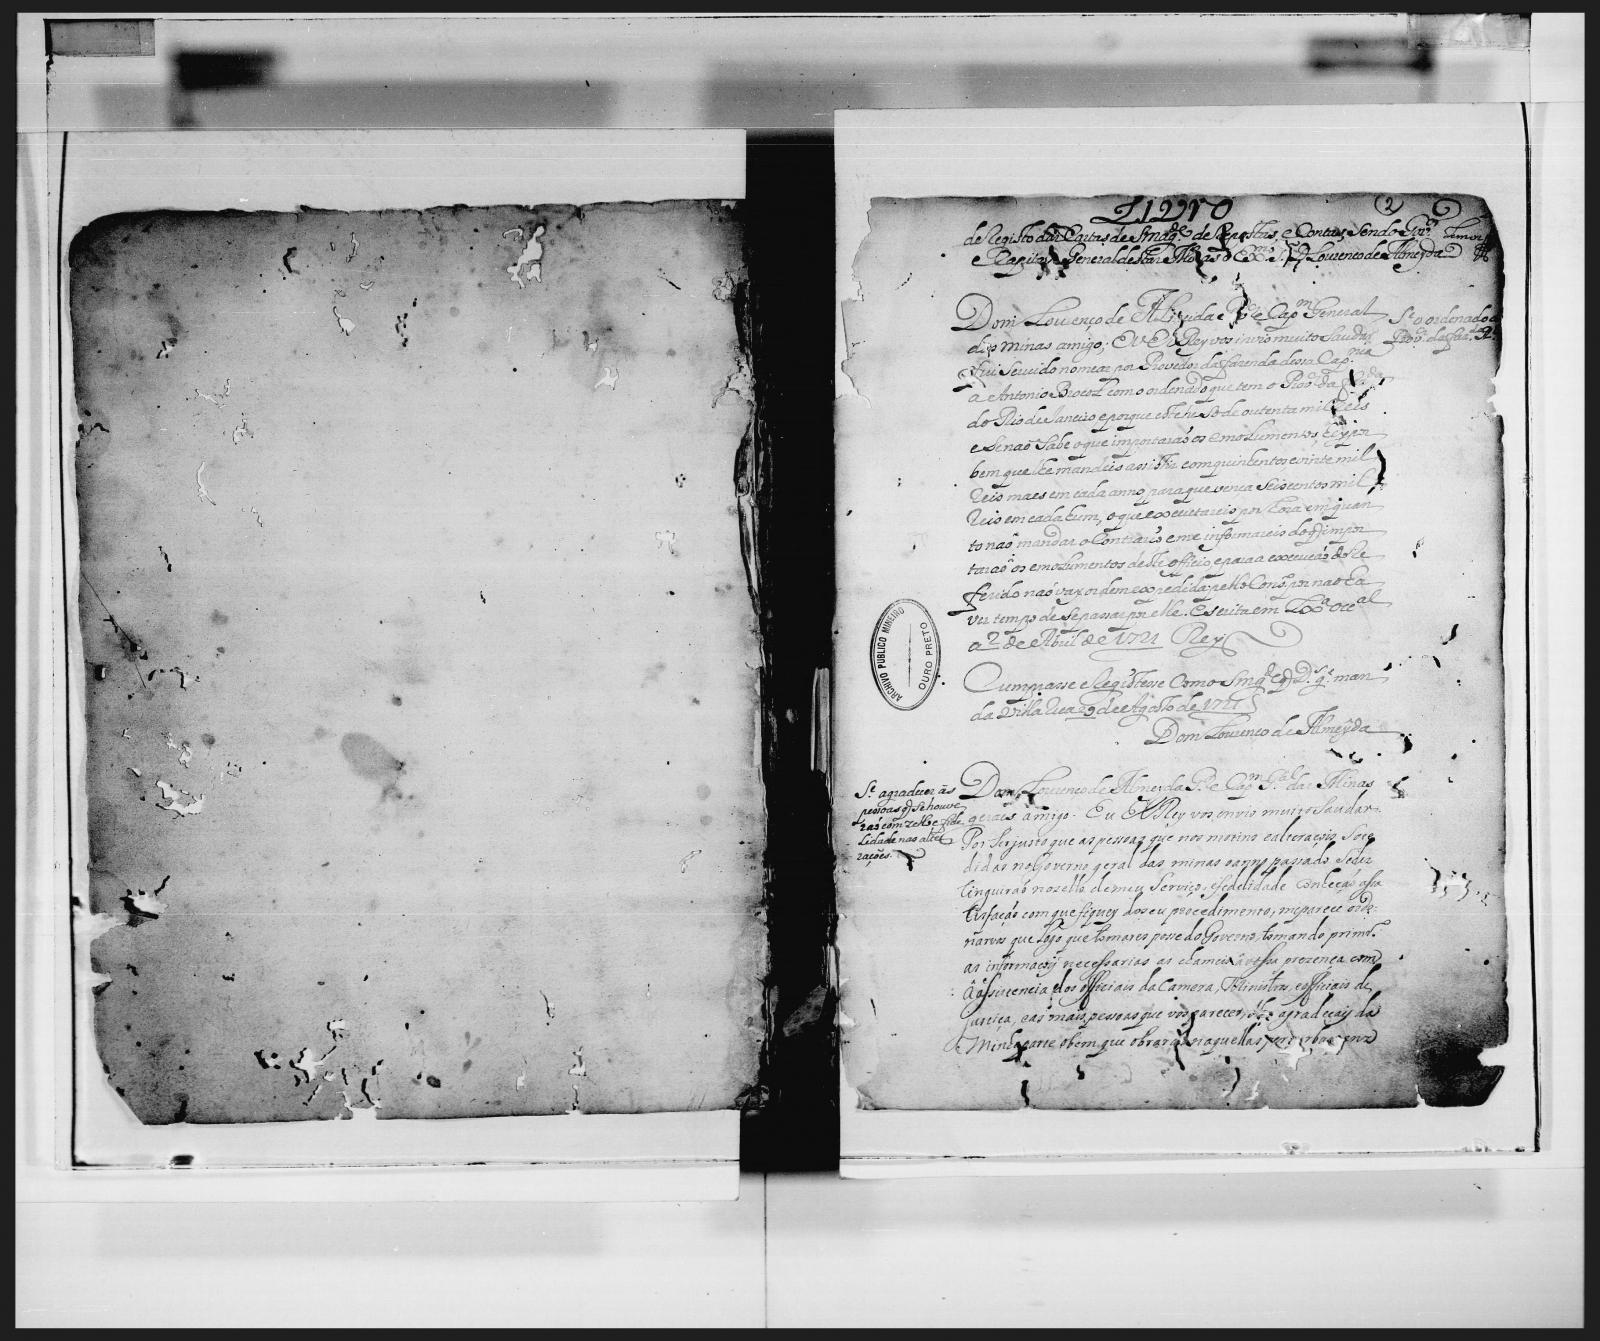 2
Livro
de Registo das Cartas de Smag.de de Repostas, e Contas, Sendo Gov.or
e Capitam General destas Minas o Ex.mo S.r D. Lourenco de Almeyda
Dom Lourenço de Almeida e G.or e Cap.m General
das Minas amigo; Eu El Rey vos invio muito Saudar
fui Servido nomear por Provedor da fazenda dessa Cap.nia
a Antonio Brocoz com o ordenado que tem o Prov.or da
do Rio de Janeiro e porque este he Só de outenta mil reis
e Se naõ Sabe o que importaráõ os emolumentos Hey por
bem que lhe mandeis assistir com quinhentos e vinte mil
Reis maes em cada anno para que vença Seiscentos mil
Reis em cada hum, o que executareis por hora em quan
to naõ mandar o Contrario e me informareis do q impor
taraõ os emolumentos deste officio e para a execuçaõ do Re
ferido naõ vay ordem expedida pello Cons.o por naõ ha
ver tempo de Se passar por elle. Escrita em Lx.a occ.al
a 2 de Abril de 1721 Rey
Cumprasse e Registesse Como Smg.de q D.s g.e man
da Villa Rica 29 de Agosto de 1721
Dom Lourenço de Almeyda
S.e o ordenado do
Prov.or da faz.da R.
ARCHIVO PUBLICO MINEIRO
OURO PRETO
S.e agradecer ás
pessoas q Se houve
raõ com zello e fide
lidade nas alte
raçoẽs.
Dom Lourenço de Almeyda G.or e Cap.m G.al das Minas
geraes amigo. Eu El Rey vos envio muito Saudar.
Por Ser justo que as pessoas que nos motins e alteraçoẽs Soce
didas no Governo geral das minas o anno passado Se dis
tinguiraõ no zello de meu Serviço, e fidelidade conheçaõ a sa
tisfaçaõ com que fiquey do seu procedimento, me pareceo orde
narvos que logo que tomares posse do Governo, tomando prim.o
as informaçoẽs necessarias as chameis a vossa prezença com
a assistencia dos officiais da Camera, Ministros, e officiais de
justiça, e as mais pessoas que vos parecer, e lhe agradeçais da
Minha parte o bem que obraraõ naquellas perturbaçoẽs